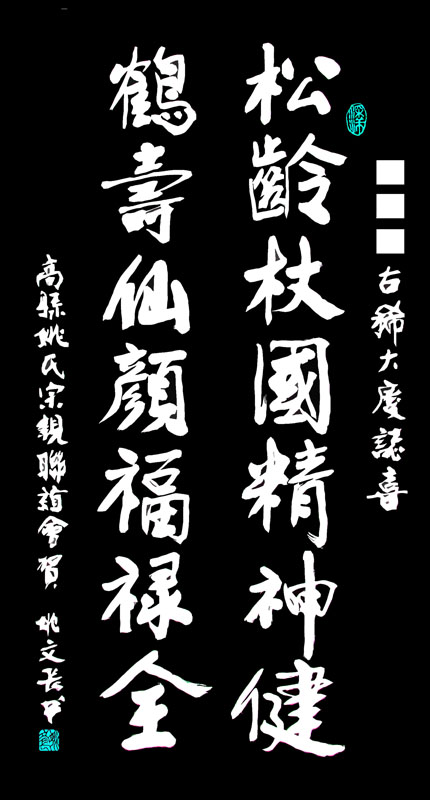 古稀大慶誌喜
松齡杖國精神健
鶴壽仙顏福禄全
高縣姚氏宗親聯誼會賀 姚文長書